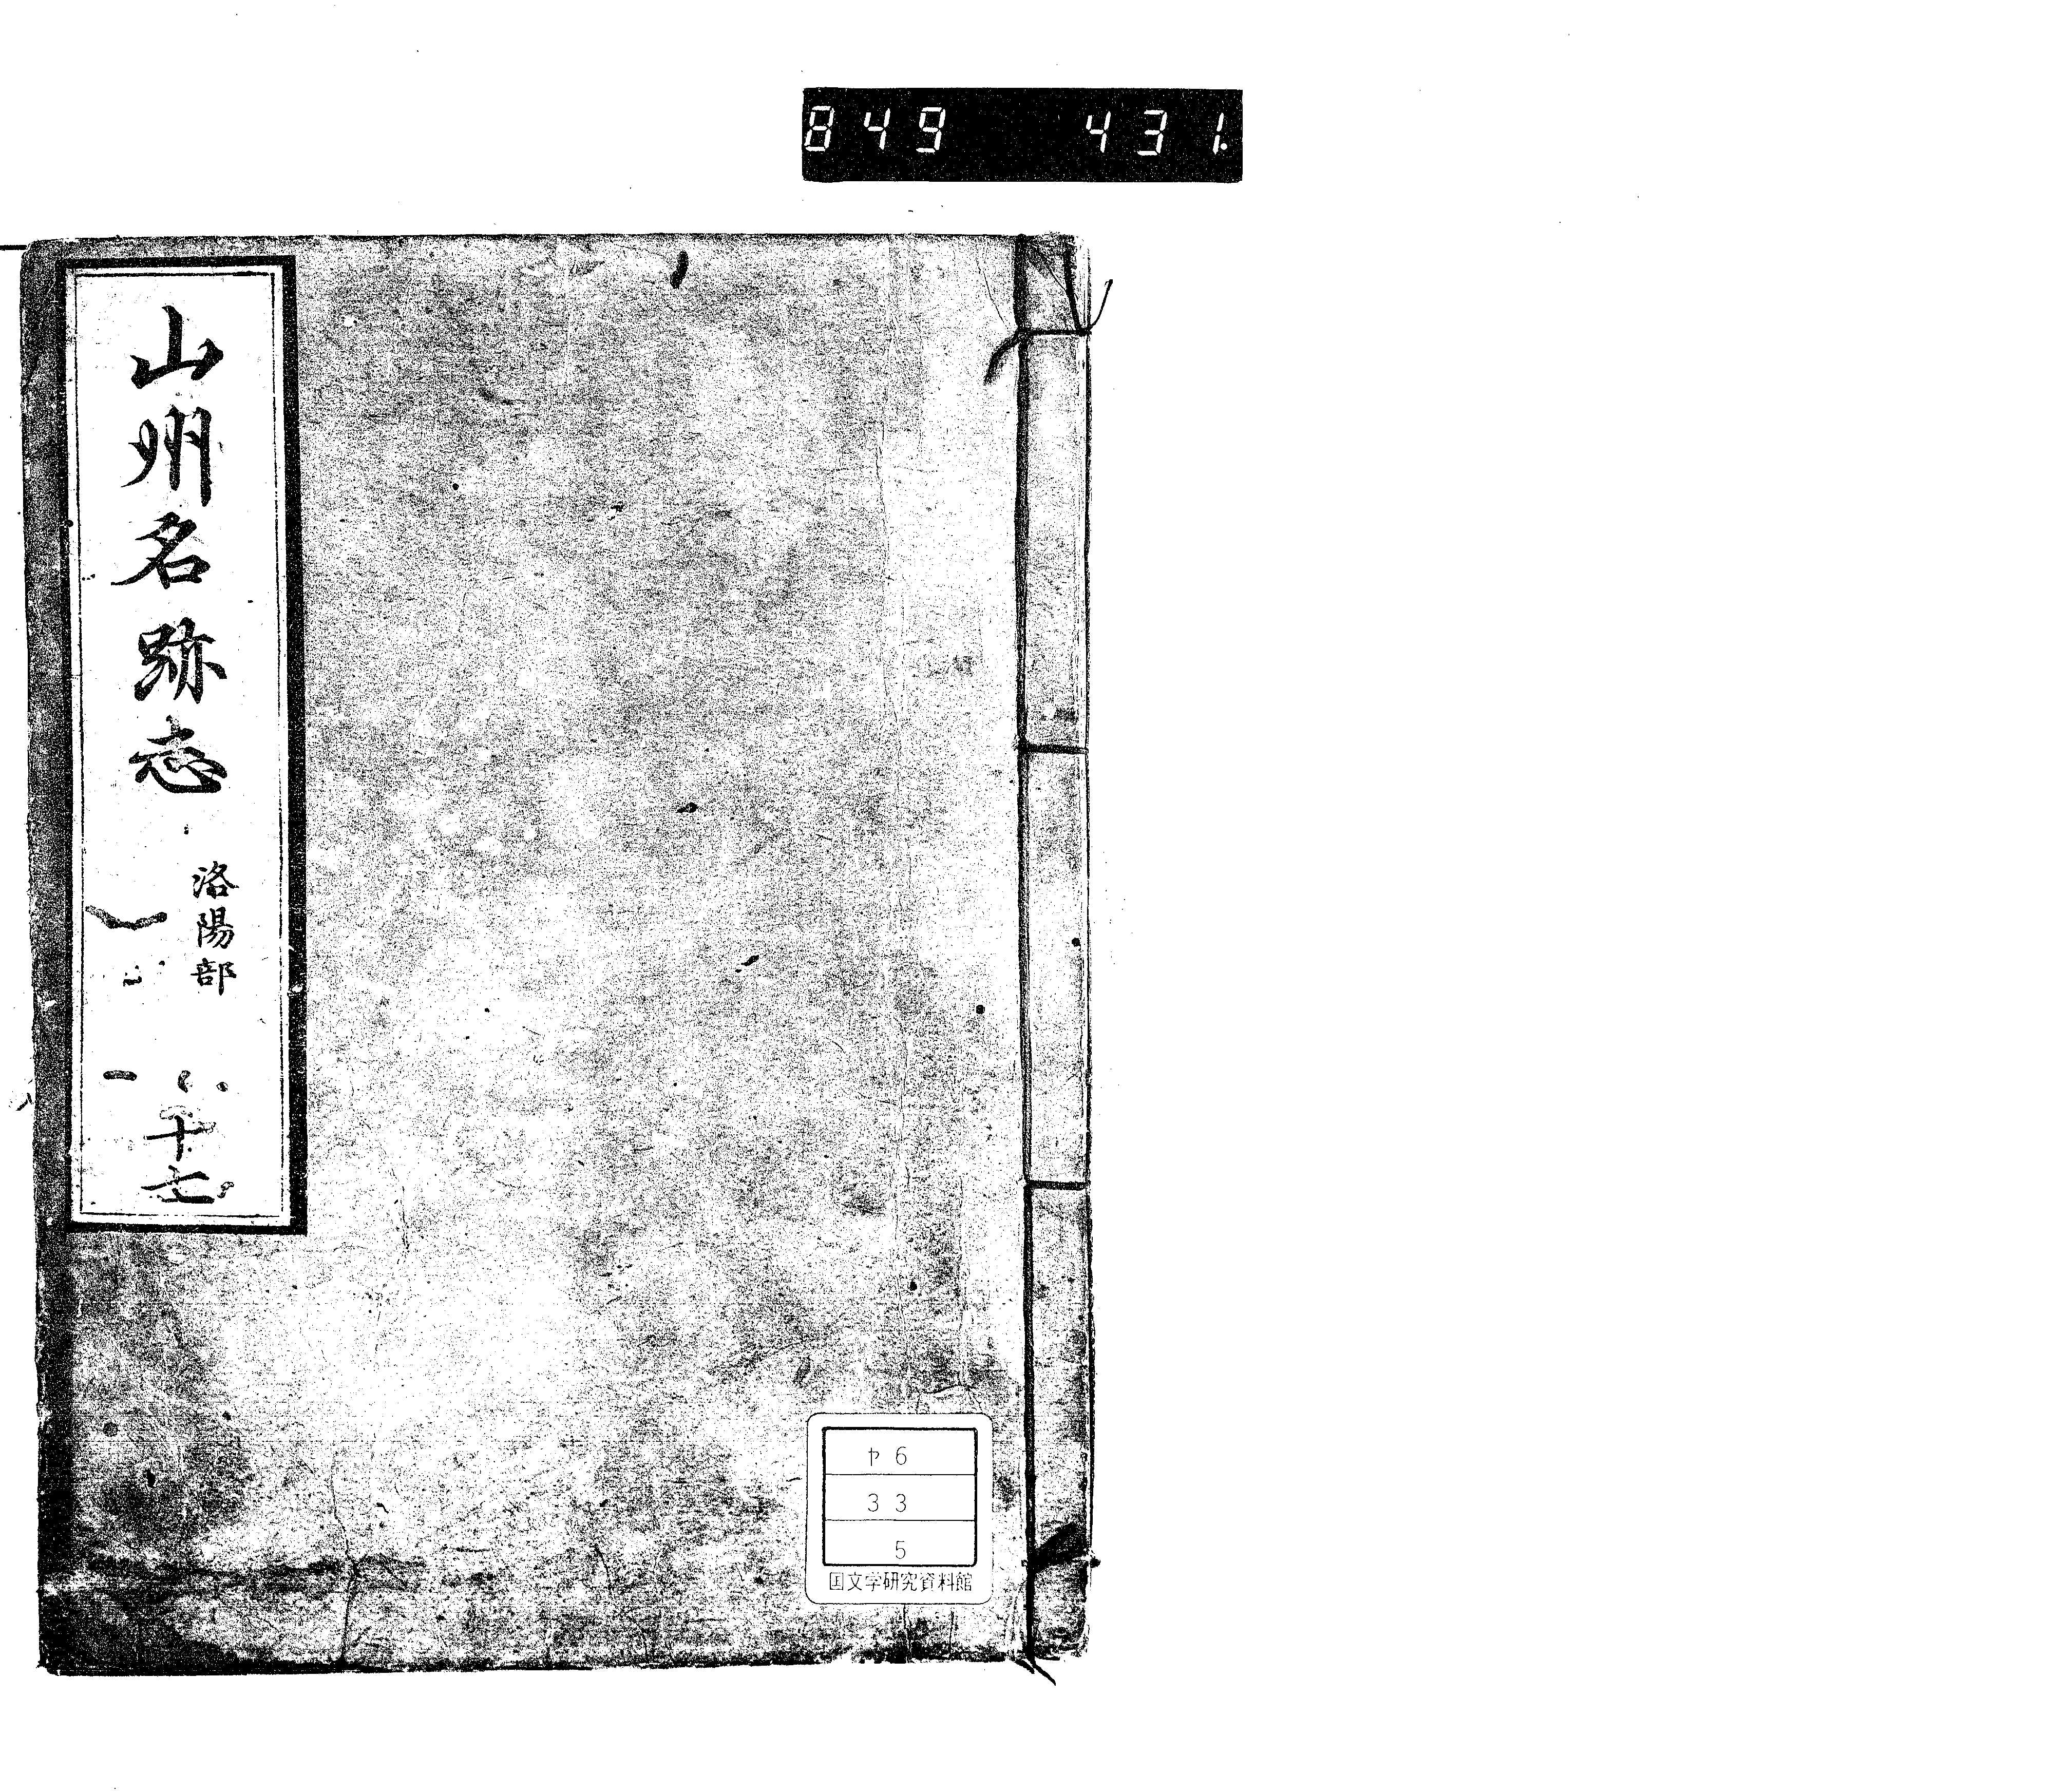 849 431.
山州名跡志
洛陽部
十七
ヤ6
33
5
国文学研究資料館